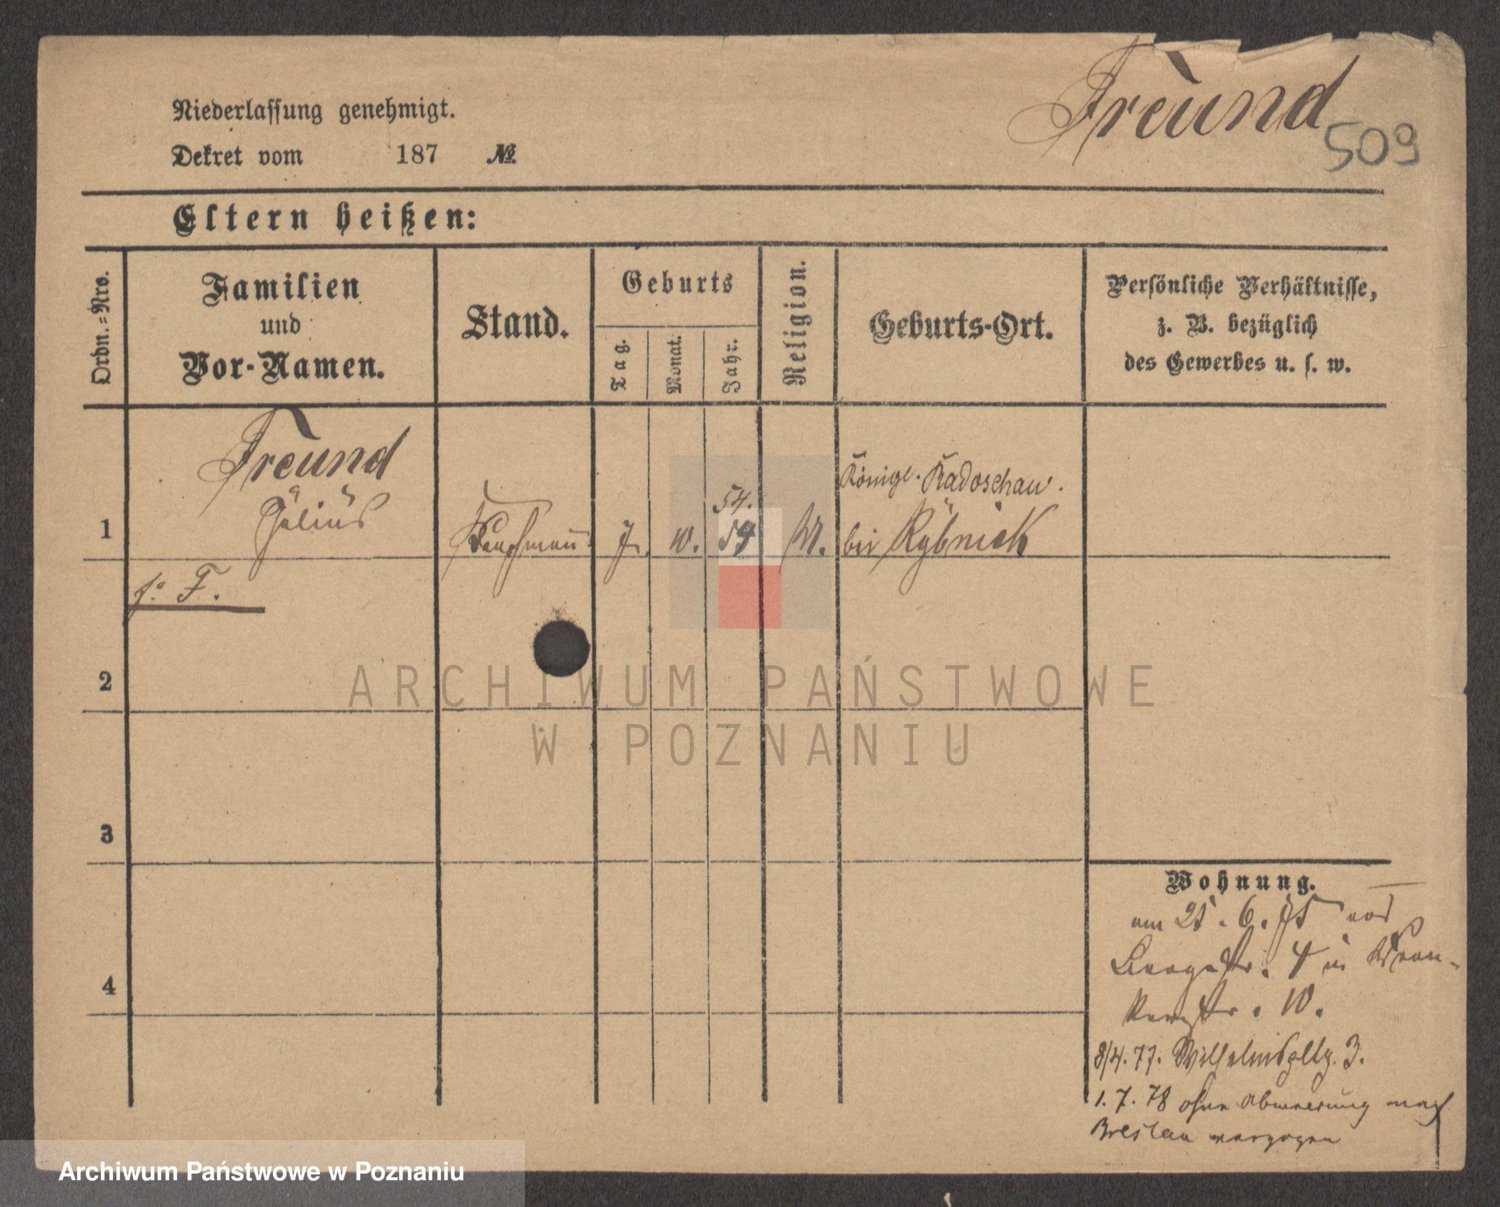 Freund
509
Niederlassung genehmigt.
Dekret vom 187 №
Eltern heißen:
Ordn.-Nro.
Familien
und
Vor-Namen.
Stand.
Geburts
Tag.
Monat.
Jahr.
Religion.
Geburts-Ort.
Persönliche Verhältnisse,
z. B. bezüglich
des Gewerbes u. s. w.
Freund
Julius
1
Kaufmann
7.
10.
54.
54
M.
Königl. Radoschau.
bei Rybnick
F.
2
ARCHIWUM PAŃSTWOWE
W POZNANIU
3
Wohnung.
am 25. 6. 75 von
4
10.
8/4. 77. Wilhelmspltz. 3.
1. 7. 78 ohne Abmeldung nach
Breslau verzogen
Archiwum Państwowe w Poznaniu